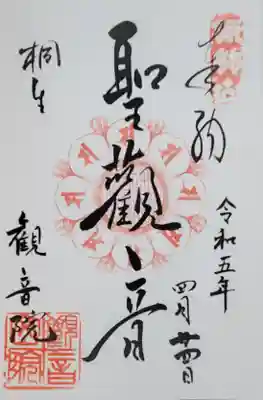 奉拝
令和五年
四月廿四日
聖觀音
桐生
観音院
觀音院